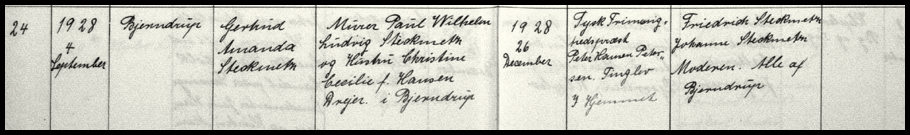 24
1928
4
September
Bjerndrup
Gertrud
Amanda
Steckmetn
Murer Paul Wilhelm
Ludvig Steckmetn
og Hustru Christine
Cecilie f. Hansen
Drejer i Bjerndrup
1928
26
December
Tysk Frimenig-
hedspræst
Peter Hansen Peter-
sen. Tinglev
I Hjemmet
Friedrich Steckmetn
Johanne Steckmetn
Moderen. Alle af
Bjerndrup